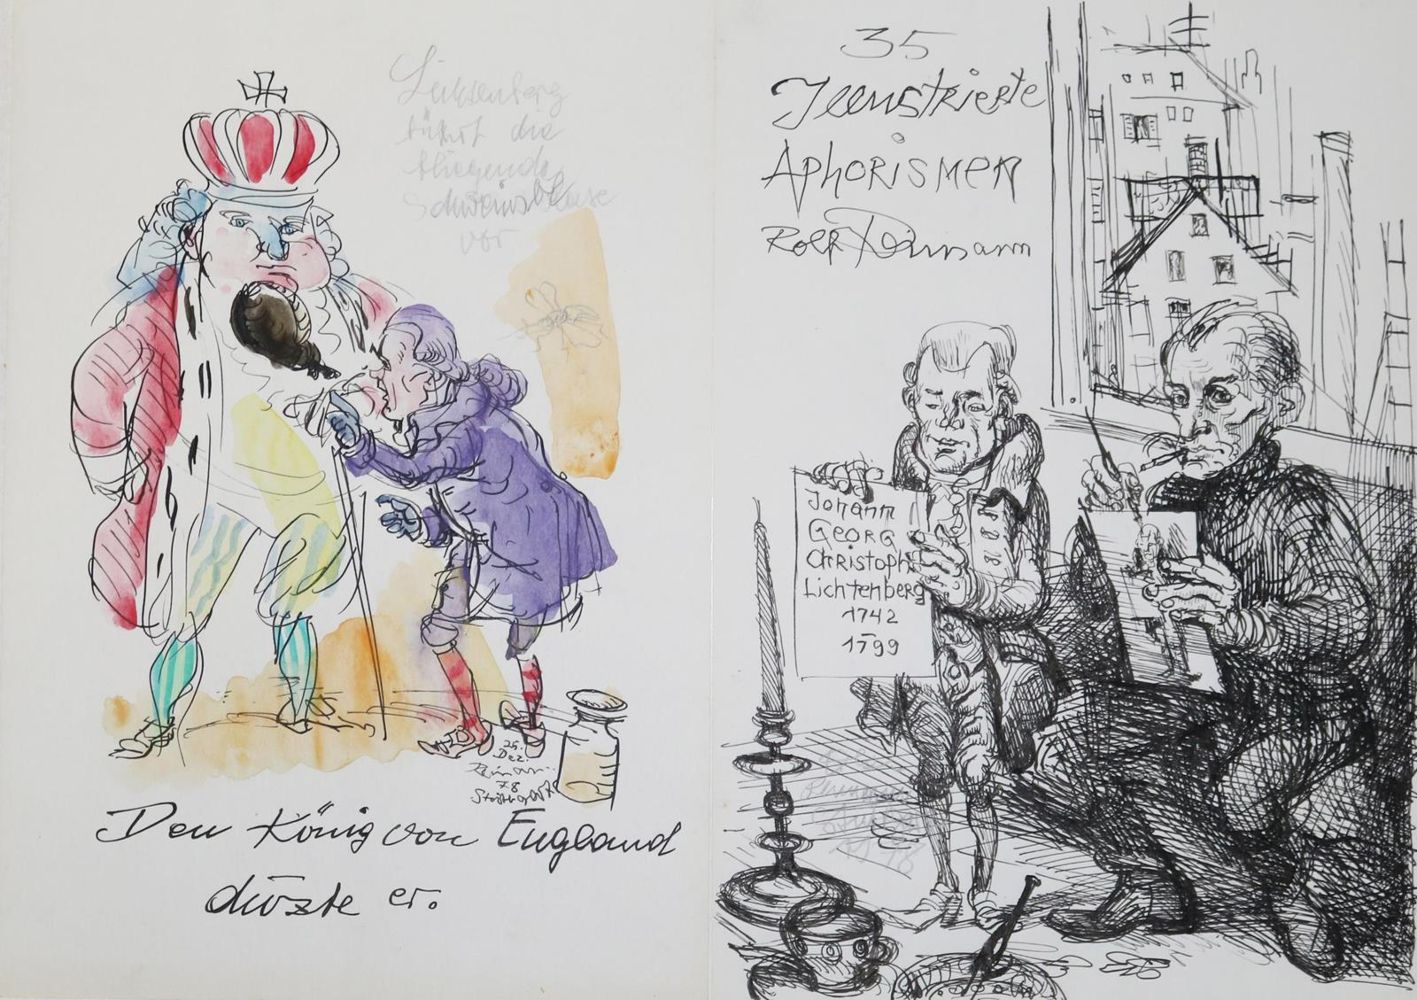 Lichtenberg
führt die
fliegende
Schweinsblase
vor
25.
Dez.
Reimann
78
Stuttgart
Den König von England
duzte er.
35
Illustrierte
Aphorismen
Rolf Reimann
Johann
Georg
Christoph
Lichtenberg
1742
1799